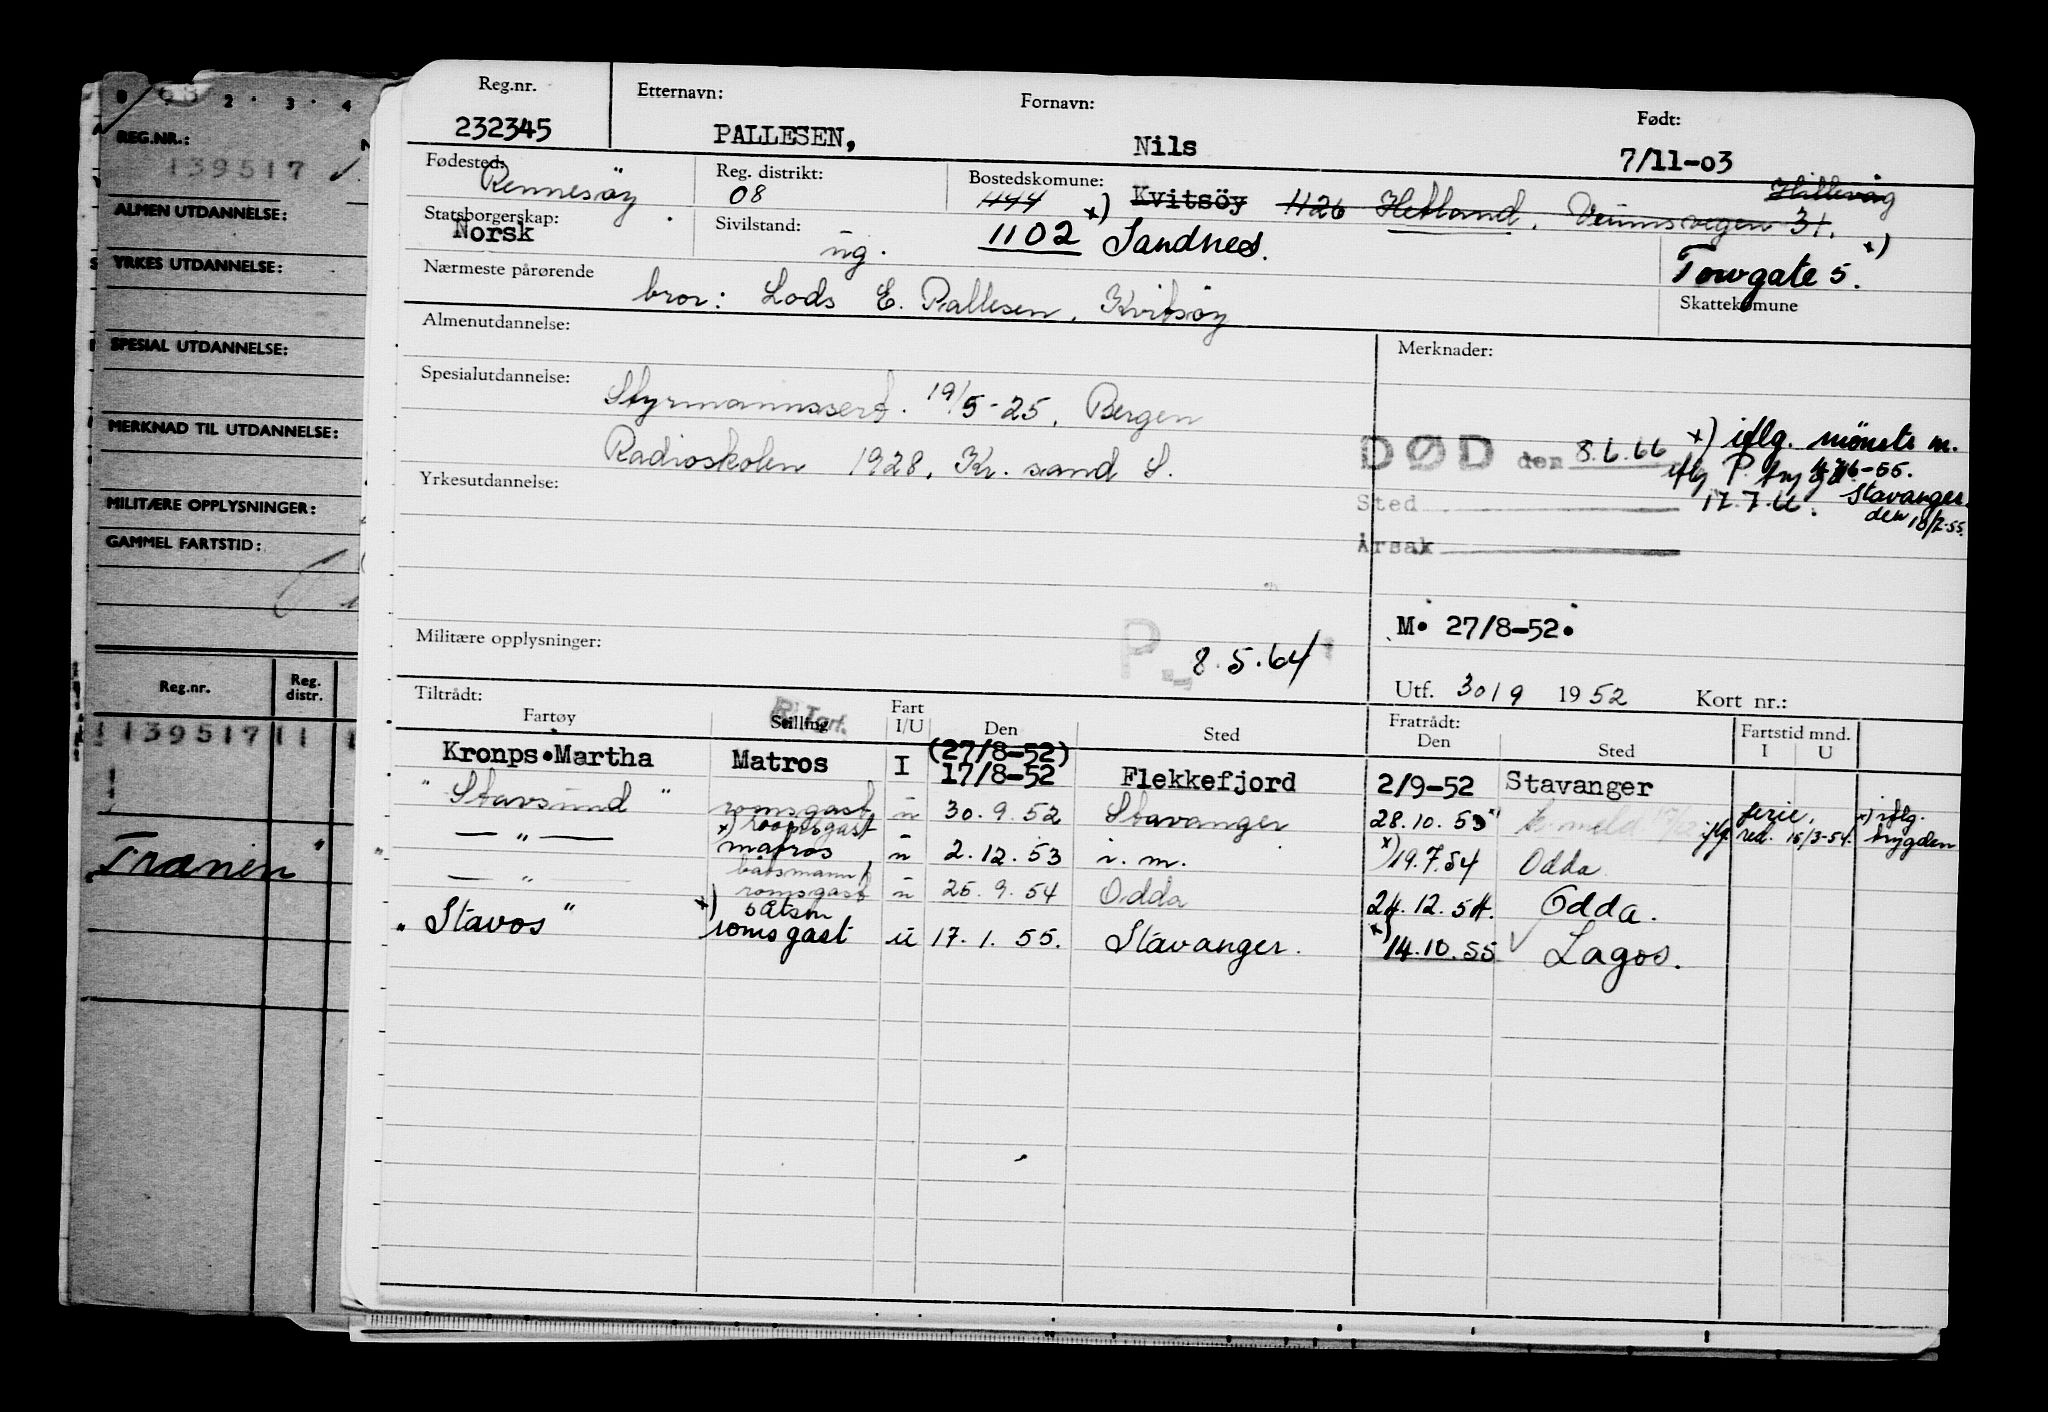 REG.NR.:
139517
ALMEN UTDANNELSE:
YRKES UTDANNELSE:
SPESIAL UTDANNELSE:
MERKNAD TIL UTDANNELSE:
MILITÆRE OPPLYSNINGER:
GAMMEL FARTSTID:
Reg.nr. Reg. distr.
139517 11
"Tranen"
Reg.nr. Etternavn: Fornavn: Født:
232345 PALLESEN, Nils 7/11-03
Fødested: Rennesöy Reg. distrikt: 08 Bostedskomune: 1144 Kvitsöy 1126 Hetland, Hillevåg
31.
Statsborgerskap: Norsk Sivilstand: ug. x) 1102 Sandnes. x)
Towgate 5.
Nærmeste pårørende bror: Lods E. Pallesen, Kvitsöy Skattekomune
Almenutdannelse: Merknader:
Spesialutdannelse: Styrmannssert. 19/5-25, Bergen
Radioskolen 1928, Kr. sand S.
DØD den 8.6.66 x) iflg. mønstr m.
iflg P. tryg -55.
Sted 17.7.66. Stavanger
den 10/2-55.
Årsak
Yrkesutdannelse:
M. 27/8-52.
Militære opplysninger: P 8.5.64
Utf. 30/9 1952 Kort nr.:
Tiltrådt: Fratrådt:
Fartøy Stilling Fart I/U Den Sted Den Sted Fartstid mnd. I U
Kronps.Martha Matros I (27/8-52) 17/8-52 Flekkefjord 2/9-52 Stavanger
"Stavsund" romsgast u 30.9.52 Stavanger 28.10.53 ferie, x) iflg.
red. 15/3-54. trygden
— " — x) romsgast matros u 2.12.53 i.m. x) 19.7.54 Odda
— " — båtsmann/ romsgast u 25.9.54 Odda 24.12.54. Odda.
"Stavos" x) båtsm romsgast u 17.1.55. Stavanger. x) 14.10.55 Lagos.